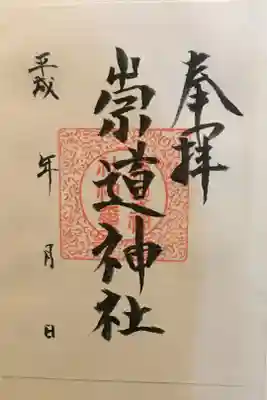 奉拝
崇道神社
平成 年 月 日